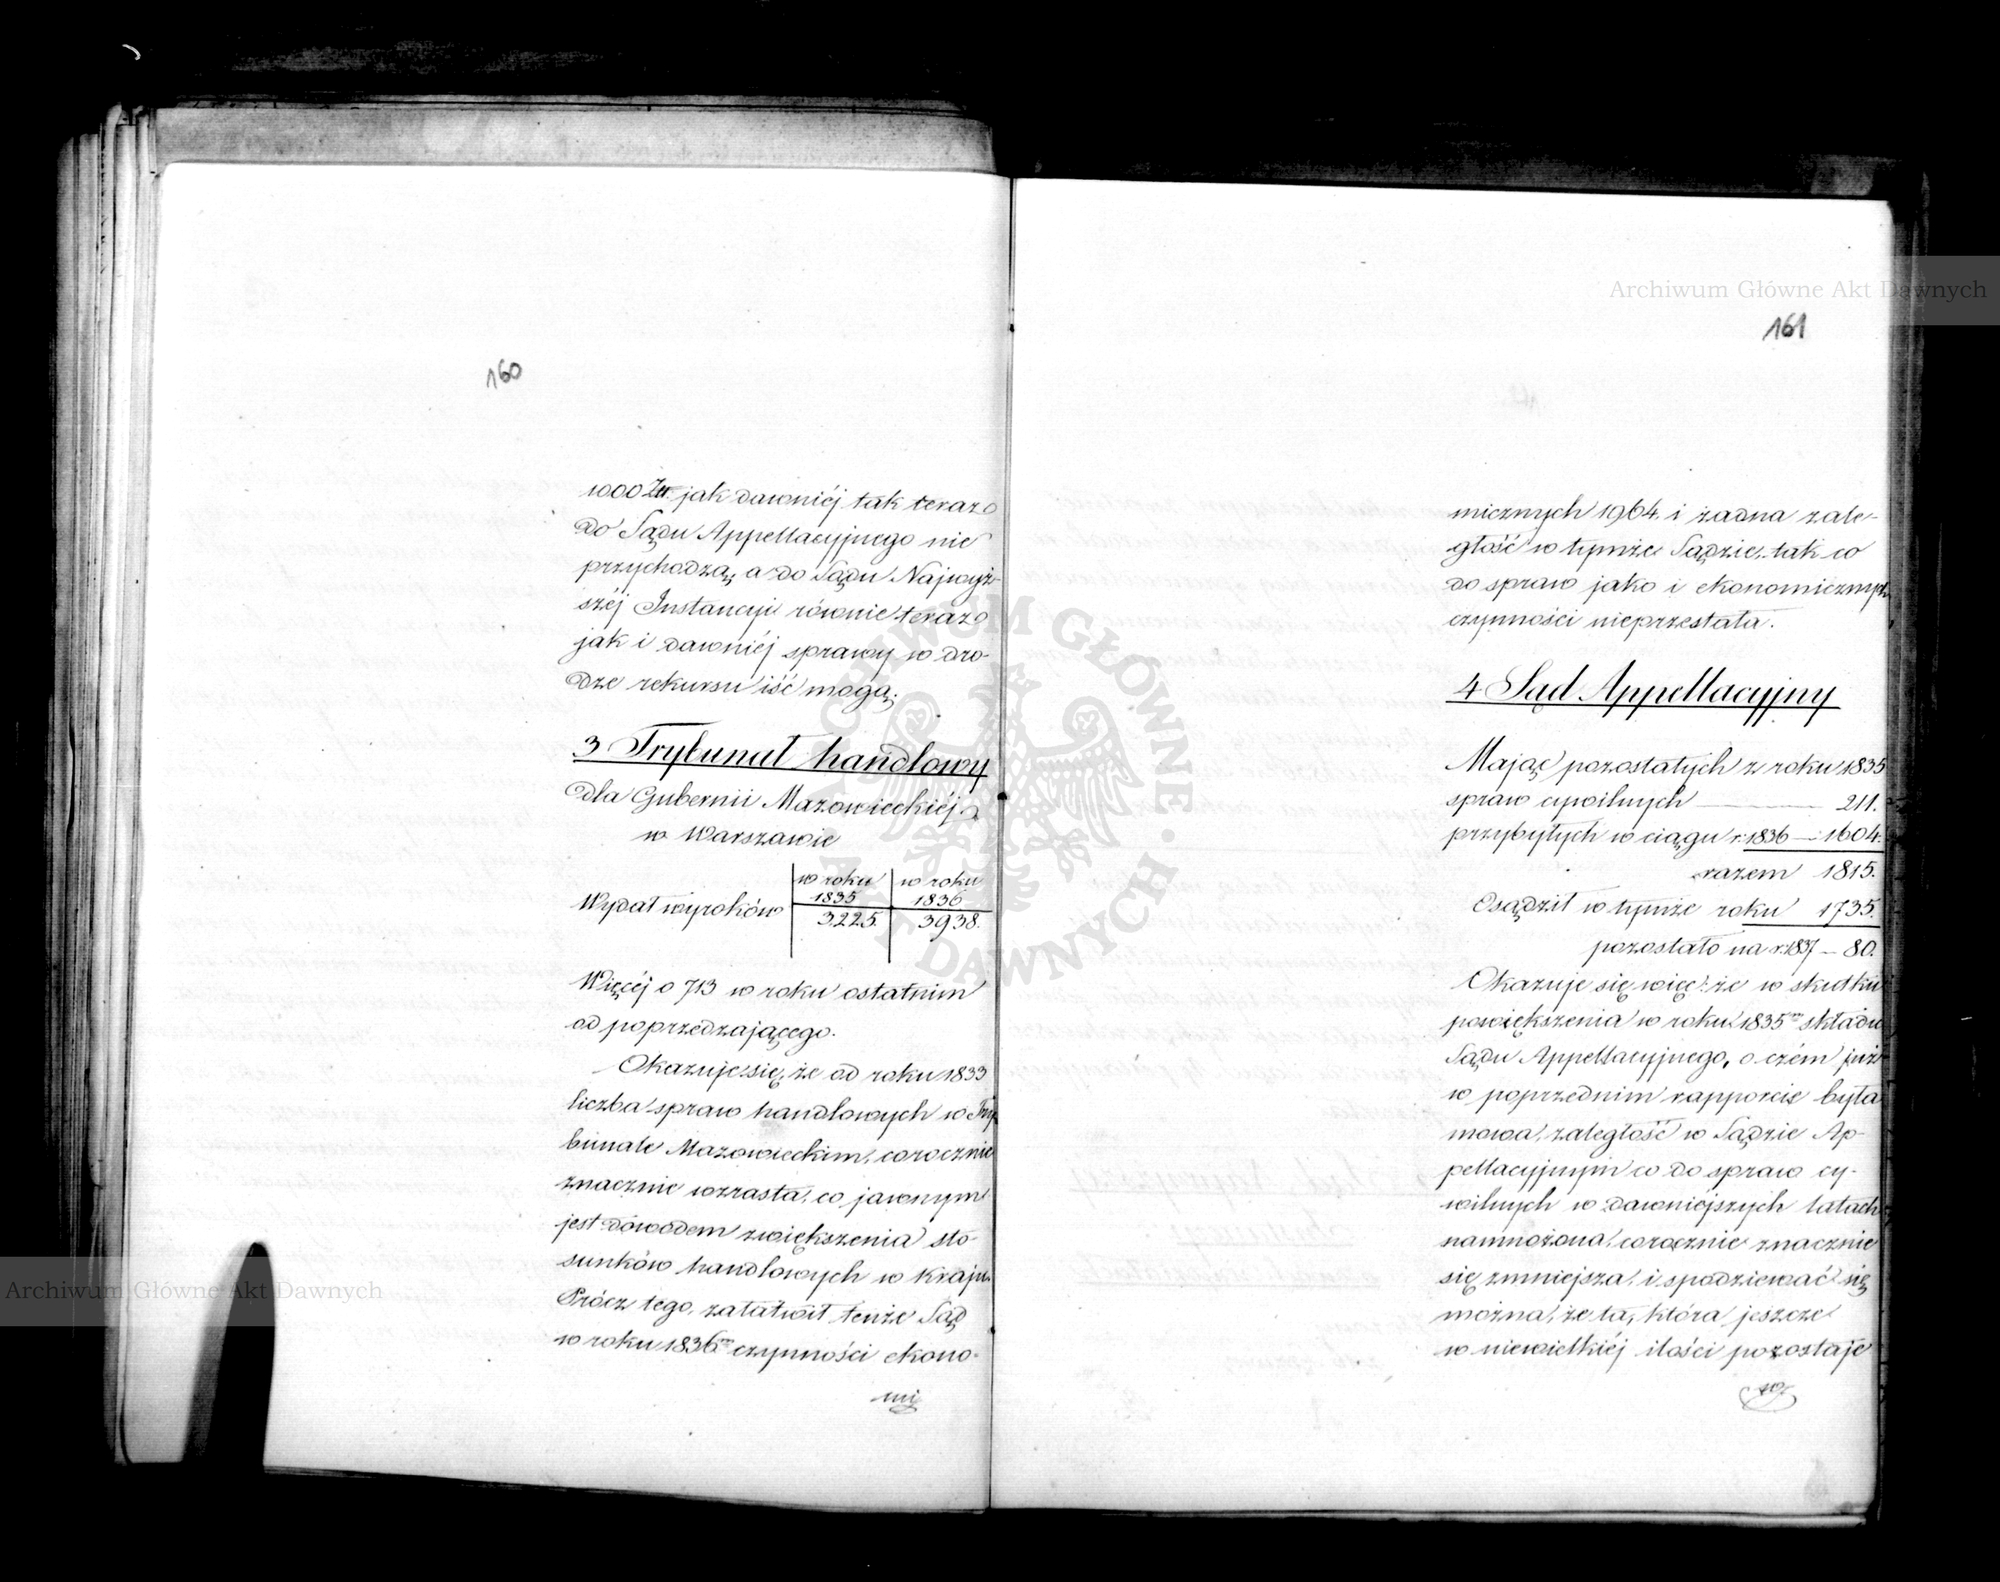 160
1000 Złł. jak dawniéj tak teraz
do Sądu Appellacyjnego nie
przychodzą, a do Sądu Najwyż-
széj Instancyi równie teraz
jak i dawniéj sprawy w dro-
dze rekursu iść mogą.
3 Trybunał handlowy
dla Gubernii Mazowieckiéj
w Warszawie
w roku 1835 w roku 1836
Wydał wyroków 3225. 3938.
Więcéj o 713 w roku ostatnim
od poprzedzającego.
Okazuje się, że od roku 1833
liczba spraw handlowych w Try-
bunale Mazowieckim, corocznie
znacznie wzrasta, co jawnym
jest dowodem zwiększenia sto-
sunków handlowych w kraju.
Prócz tego, załatwił tenże Sąd
w roku 1836m czynności ekono-
mi
Archiwum Główne Akt Dawnych
161
micznych 1964. i żadna zale-
głość w tymże Sądzie, tak co
do spraw jako i ekonomicznych
czynności nieprzestała.
4 Sąd Appellacyjny
Mając pozostałych z roku 1835
spraw cywilnych 211.
przybyłych w ciągu r. 1836 — 1604.
razem 1815.
Osądził w tymże roku 1735.
pozostało na r. 1837 — 80.
Okazuje się więc: że w skutku
powiększenia w roku 1835m składu
Sądu Appellacyjnego, o czém już
w poprzednim rapporcie była
mowa, zaległość w Sądzie Ap-
pellacyjnym co do spraw cy-
wilnych w dawniejszych latach
namnożona, corocznie znacznie
się zmniejsza, i spodziewać się
można, że ta, która jeszcze
w niewielkiéj ilości pozostaje
Archiwum Główne Akt Dawnych
ARCHIWUM GŁÓWNE AKT DAWNYCH